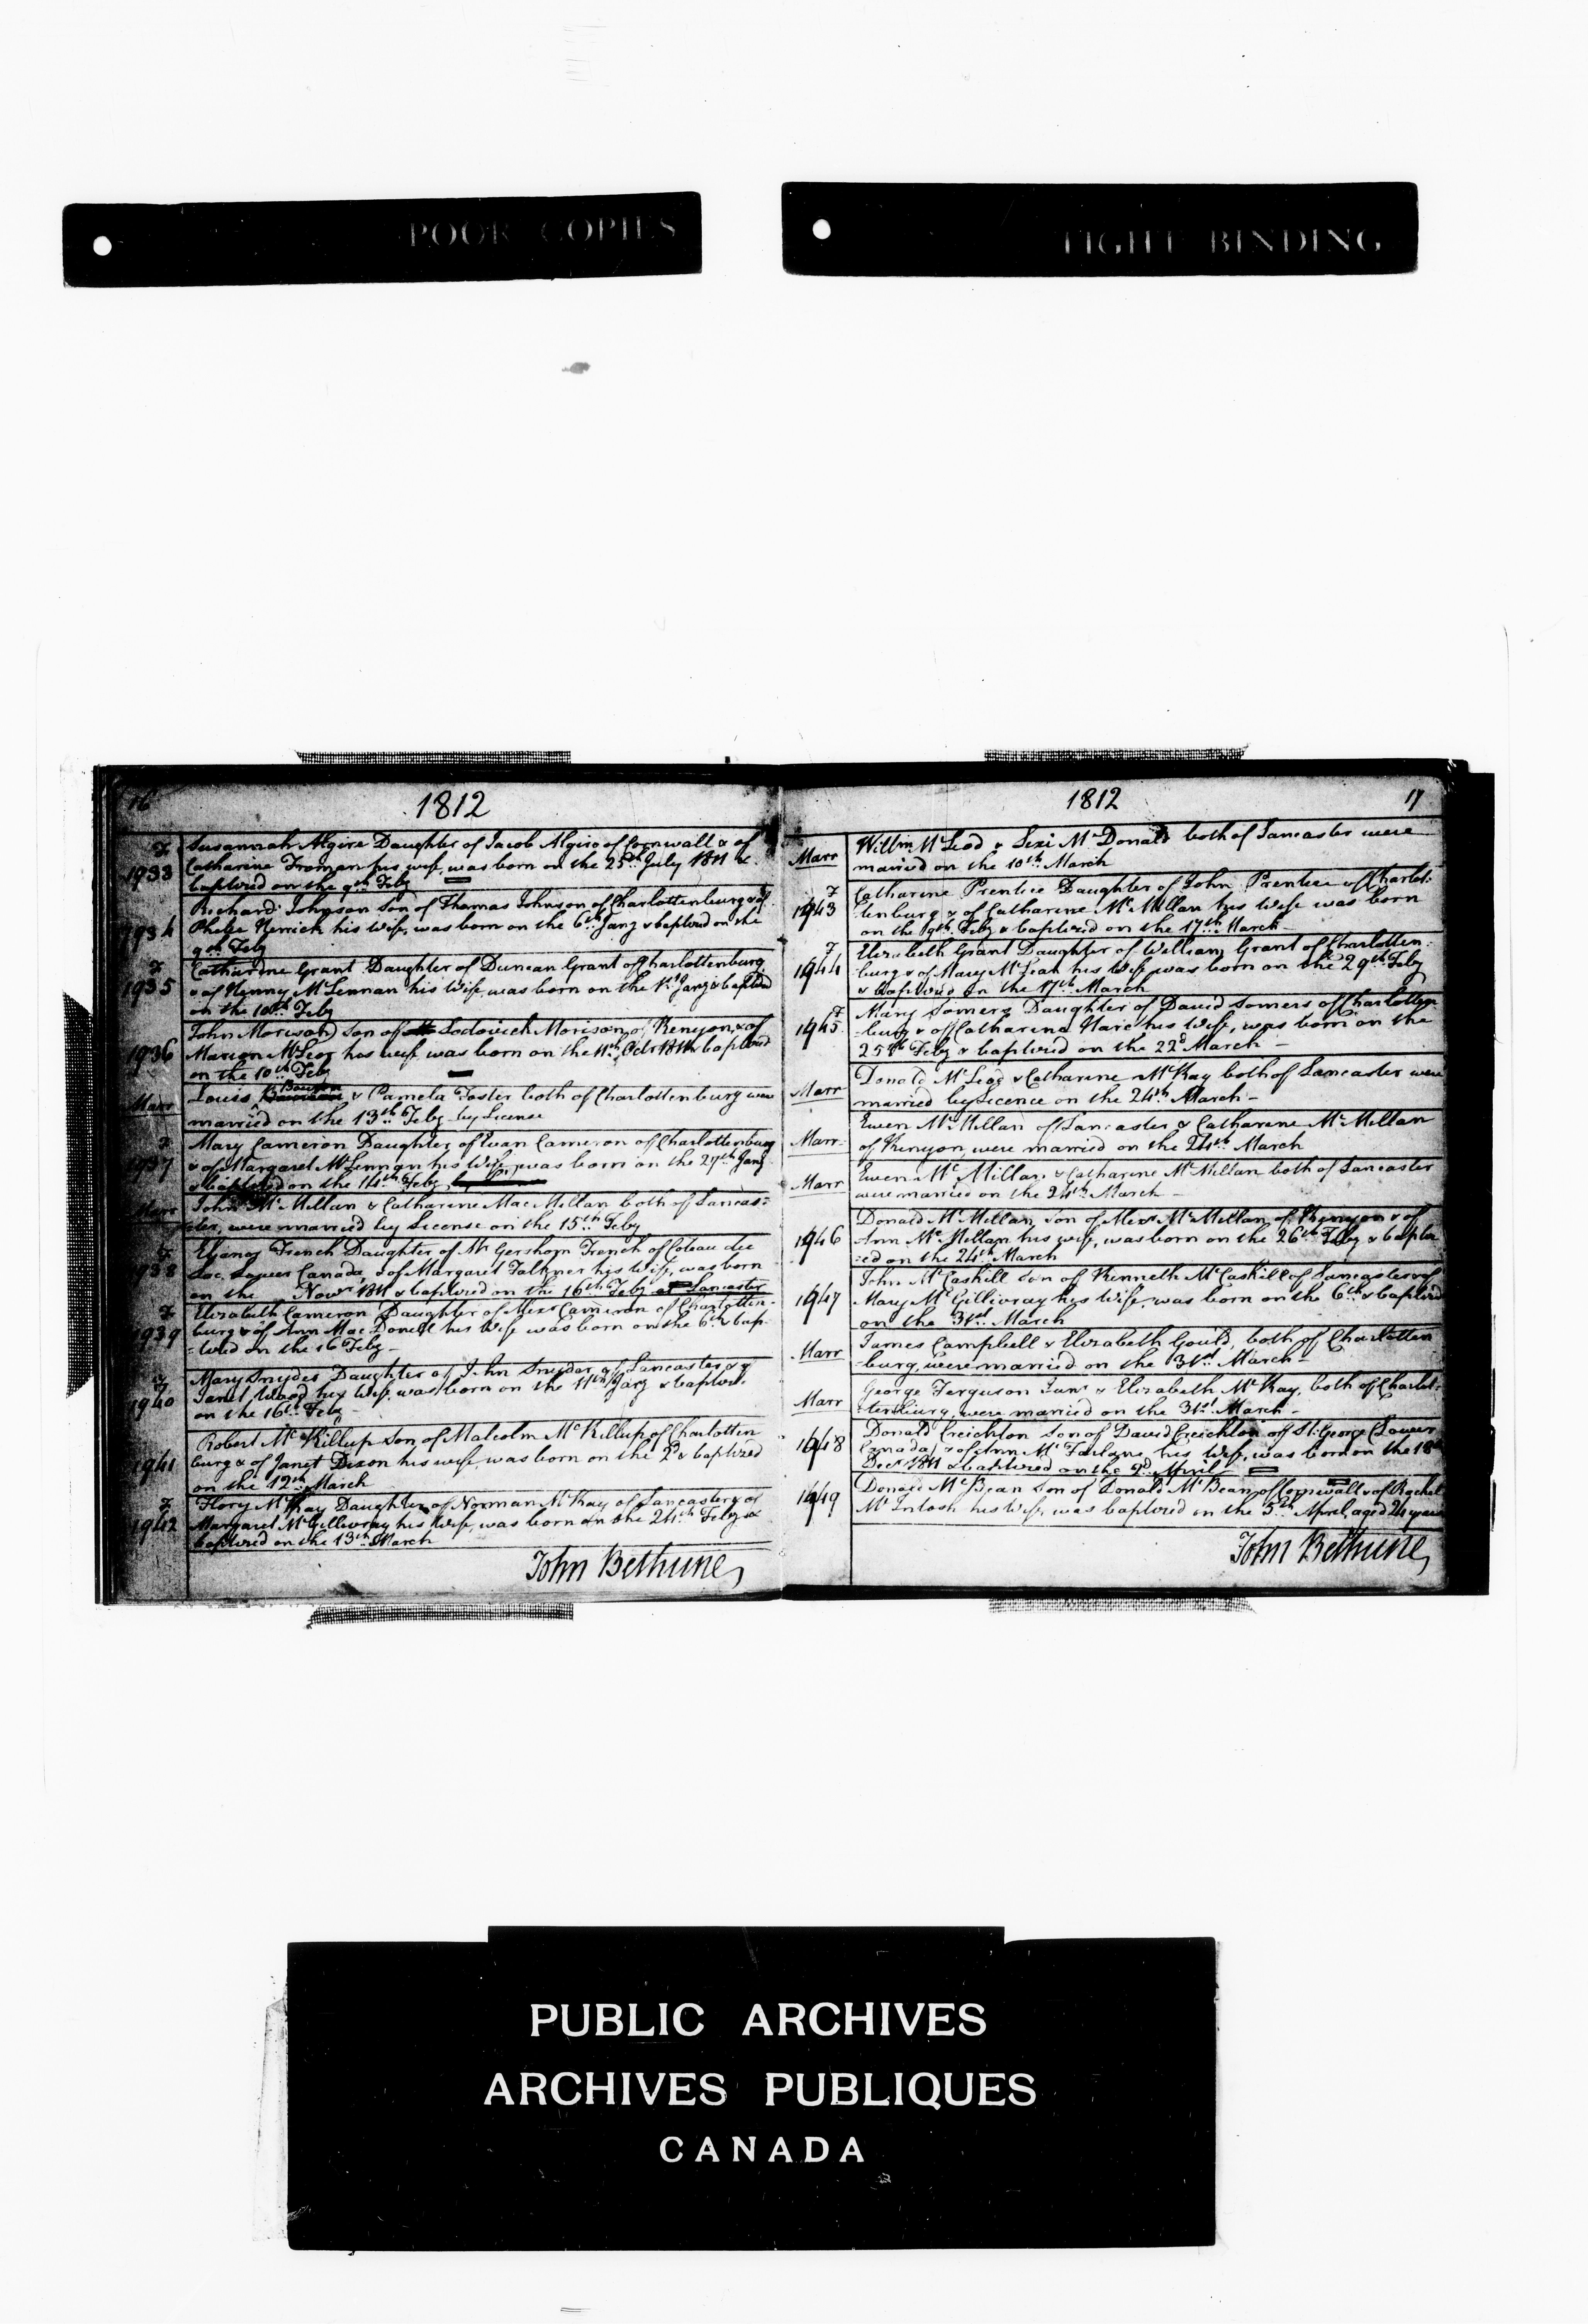 POOR COPIES
TIGHT BINDING
16
1812
F
1933
Susannah Algire Daughter of Jacob Algire of Cornwall & of
Catharine Froman his wife, was born on the 25th July 1811 &
baptized on the 9th Feby
1934
Richard Johnson Son of Thomas Johnson of Charlottenburg & of
Phebe Herrick his wife, was born on the 6th Jany & baptized on the
9th Feby
F
1935
Catharine Grant Daughter of Duncan Grant of Charlottenburg
& of Nenny McLennan his Wife, was born on the 1st Jany & baptized
on the 10th Feby
1936
John Morison Son of Lodovick Morison of Kenyon & of
Marion McLeod his wife was born on the 11th Octr 1811 & baptized
on the 10th Feby
Marr
Louis & Pamela Foster both of Charlottenburg were
married on the 13th Feby by License
F
1937
Mary Cameron Daughter of Evan Cameron of Charlottenburg
& of Margaret McLennan his Wife, was born on the 27th Jany
& baptized on the 14th Feby
Marr
John McMillan & Catharine MacMillan both of Lancas:
ter, were married by License on the 15th Feby
F
1938
Elyanor French Daughter of Mr Gershom French of Coteau du
Lac, Lower Canada, & of Margaret Falkner his Wife, was born
on the Novr 1811 & baptized on the 16th Feby at Lancaster
F
1939
Elizabeth Cameron Daughter of Alexr Cameron of Charlotten-
burg & of Ann MacDonell his Wife was born on the 6th & bap-
tized on the 16 Feby -
F
1940
Mary Snyder Daughter of John Snyder of Lancaster & of
Janet Wood his Wife, was born on the 11th Jany & baptized
on the 16th Feby
1941
Robert McKillup Son of Malcolm McKillup of Charlotten
burg & of Janet Dixon his wife, was born on the 2d & baptized
on the 12th March
F
1942
Flory McKay Daughter of Norman McKay of Lancaster & of
Margaret McGillivray his Wife, was born on the 24th Feby &
baptized on the 13th March
John Bethune
1812
17
Marr
Willm McLeod & Lexi McDonald both of Lancaster were
married on the 10th March
F
1943
Catharine Prentice Daughter of John Prentice of Charlot:
tenburg & of Catharine McMillan his Wife was born
on the 19th Feby & baptized on the 17th March
F
1944
Elizabeth Grant Daughter of William Grant of Charlotten:
burg & of Mary McLeah his Wife was born on the 29th Feby
& baptized on the 17th March
F
1945
Mary Somers Daughter of David Somers of Charlotten
burg & of Catharine his Wife, was born on the
25th Feby & baptized on the 22d March -
Marr
Donald McLeod & Catharine McKay both of Lancaster were
married by Licence on the 24th March -
Marr
Ewen McMillan of Lancaster & Catharine McMillan
of Kenyon were married on the 24th March
Marr
Ewen McMillan & Catharine McMillan both of Lancaster
were married on the 24th March -
1946
Donald McMillan, Son of Alexr McMillan of Kenyon & of
Ann McMillan his wife, was born on the 26th Feby & baptiz
:ed on the 24th March
1947
John McCaskill Son of Kenneth McCaskill of Lancaster & of
Mary McGillivray his Wife, was born on the 6th & baptized
on the 31st March
Marr
James Campbell & Elizabeth Gould, both of Charlotten
burg, were married on the 31st March -
Marr
George Ferguson Junr & Elizabeth McKay, both of Charlot:
tenburg, were married on the 31st March -
1948
Donald Creichton Son of David Creichton of St. George (Lower
Canada) & of Ann McFarlane his Wife, was born on the 18th
Decr 1811 & baptized on the 2d April
1949
Donald McBean Son of Donald McBean of Cornwall & of Rachel
McIntosh his Wife, was baptized on the 5th April, aged 24 years
John Bethune
PUBLIC ARCHIVES
ARCHIVES PUBLIQUES
CANADA